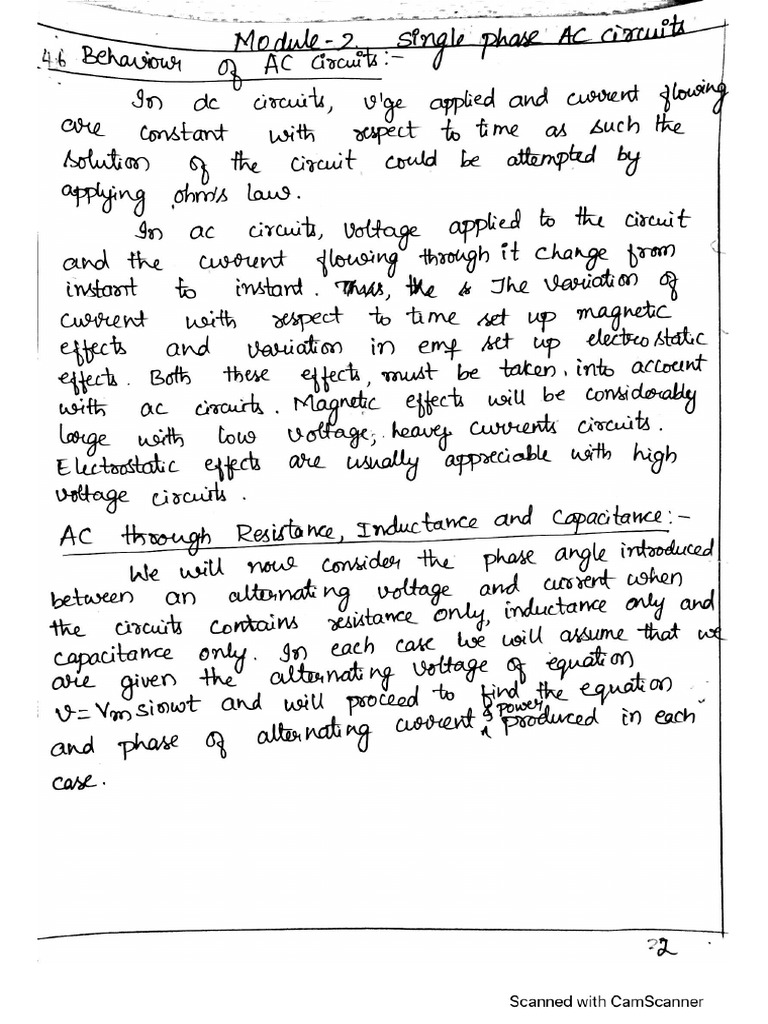 Module-2 Single phase AC circuits
4.6 Behaviour of AC Circuits:-
In dc circuits, v'ge applied and current flowing
are constant with respect to time as such the
solution of the circuit could be attempted by
applying ohm's law.
In ac circuits, voltage applied to the circuit
and the current flowing through it change from
instant to instant. Thus, the The variation of
current with respect to time set up magnetic
effects and variation in emf set up electrostatic
effects. Both these effects, must be taken, into account
with ac circuits. Magnetic effects will be considerably
large with low voltage, heavy currents circuits.
Electrostatic effects are usually appreciable with high
voltage circuits.
AC through Resistance, Inductance and Capacitance:-
We will now consider the phase angle introduced
between an alternating voltage and current when
the circuits contains resistance only, inductance only and
capacitance only. In each case we will assume that we
are given the alternating voltage of equation
v=Vm sinwt and will proceed to find the equation
and phase of alternating current & power produced in each
case.
22
Scanned with CamScanner